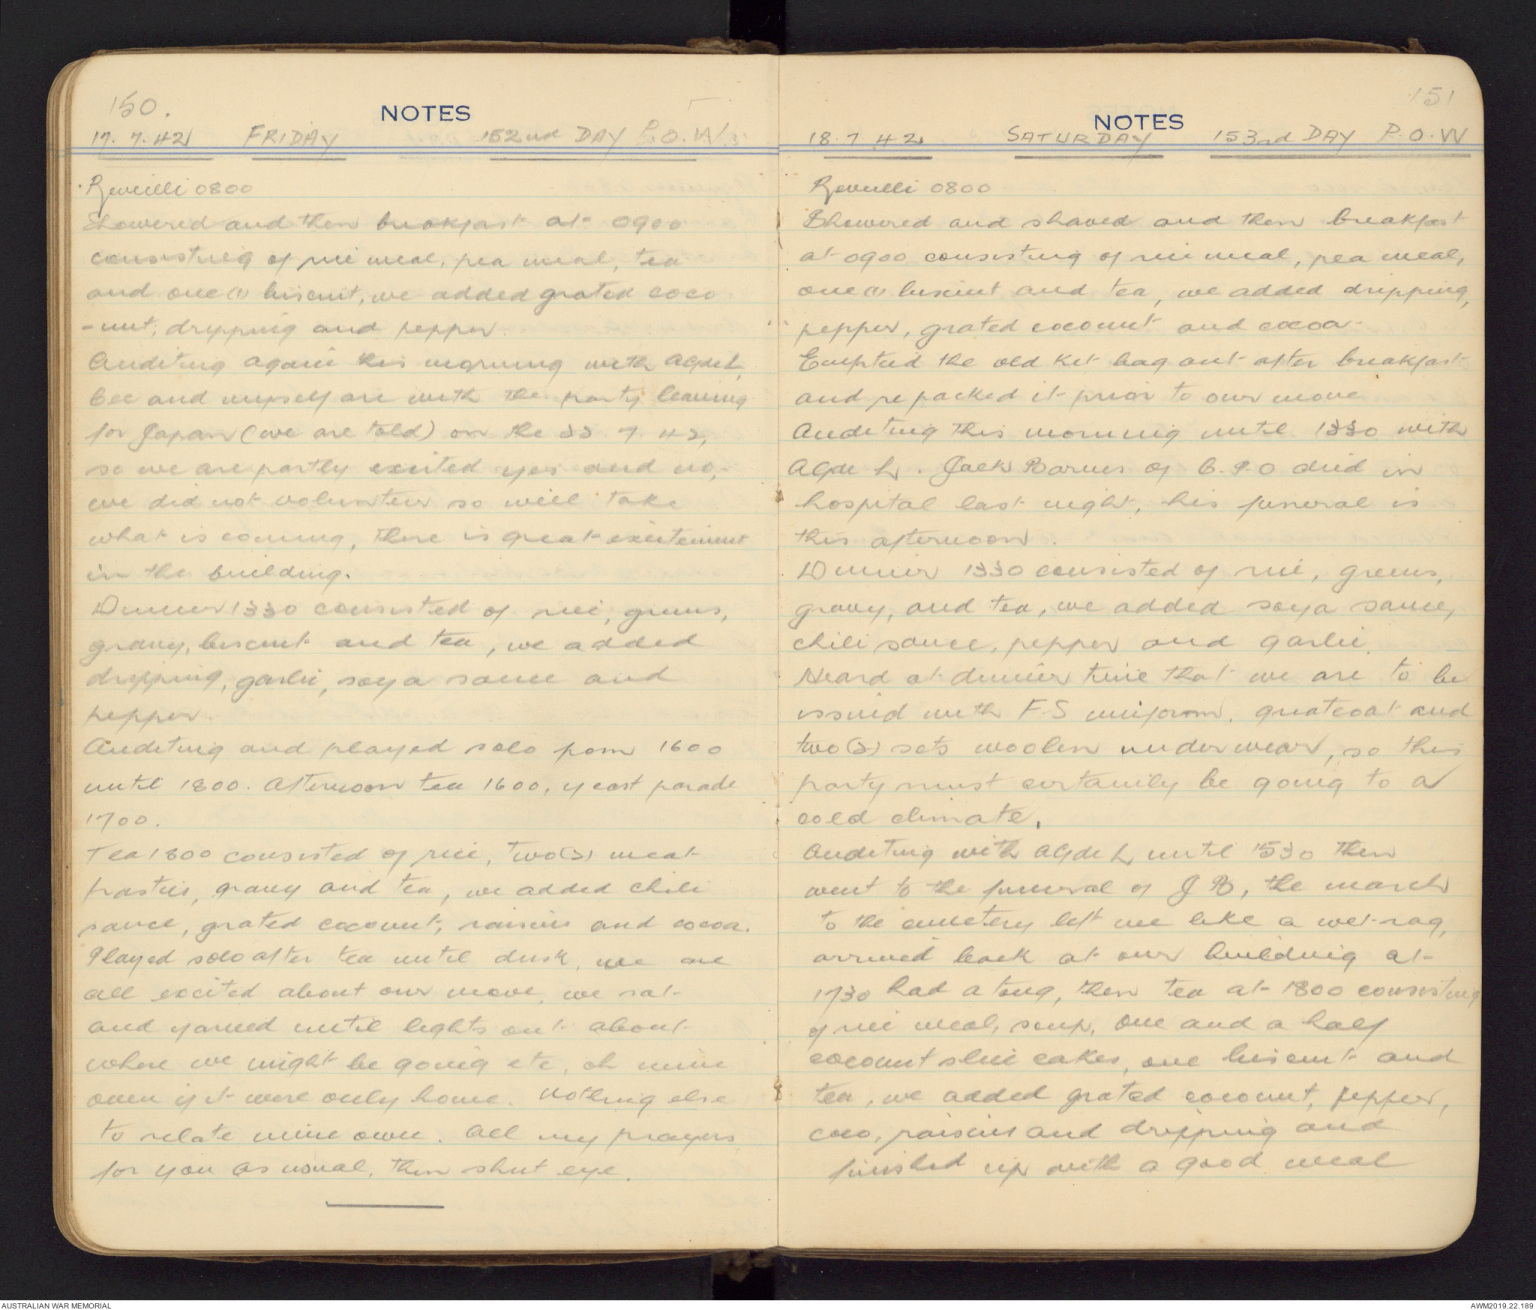 150.
NOTES
17.7.42 FRIDAY 152nd DAY P.O.W
Reveilli 0800
Showered and then breakfast at 0900
consisting of rice meal, pea meal, tea
and one (1) biscuit, we added grated coco
-nut, dripping and pepper.
Auditing again this morning with
and myself are with the party leaving
for Japan (we are told) on the 22.7.42,
so we are partly excited yes and no,
we did not volunteer so will take
what is coming, there is great excitement
in the building.
Dinner 1330 consisted of rice, greens,
gravy, biscuit and tea, we added
dripping, garlic, soya sauce and
pepper.
Auditing and played solo from 1600
until 1800. Afternoon tea 1600, yeast parade
1700.
Tea 1800 consisted of rice, two (2) meat
pasties, gravy and tea, we added chili
sauce, grated coconut, raisins and cocoa.
Played solo after tea until dusk, we are
all excited about our move, we sat
and yarned until lights out about
where we might be going etc, oh mine
own if it were only home. Nothing else
to relate mine own. All my prayers
for you as usual, then shut eye.
151
NOTES
18.7.42 SATURDAY 153rd DAY P.O.W
Reveilli 0800
Showered and shaved and then breakfast
at 0900 consisting of rice meal, pea meal,
one (1) biscuit and tea, we added dripping,
pepper, grated coconut and cocoa.
Emptied the old kit bag out after breakfast
and repacked it prior to our move
Auditing this morning until 1330 with
Jack Barnes of died in
hospital last night, his funeral is
this afternoon.
Dinner 1330 consisted of rice, greens,
gravy, and tea, we added soya sauce,
chili sauce, pepper and garlic.
Heard at dinner time that we are to be
issued with F.S uniform, greatcoat and
two (2) sets woolen underwear, so this
party must certainly be going to a
cold climate.
Auditing with until 1530 then
went to the funeral of J B, the march
to the cemetery left me like a wet rag,
arrived back at our building at
1730 had a tong, then tea at 1800 consisting
of rice meal, soup, one and a half
coconut slice cakes, one biscuit and
tea, we added grated coconut, pepper,
coco, raisins and dripping and
finished up with a good meal
AUSTRALIAN WAR MEMORIAL
AWM2019.22.189